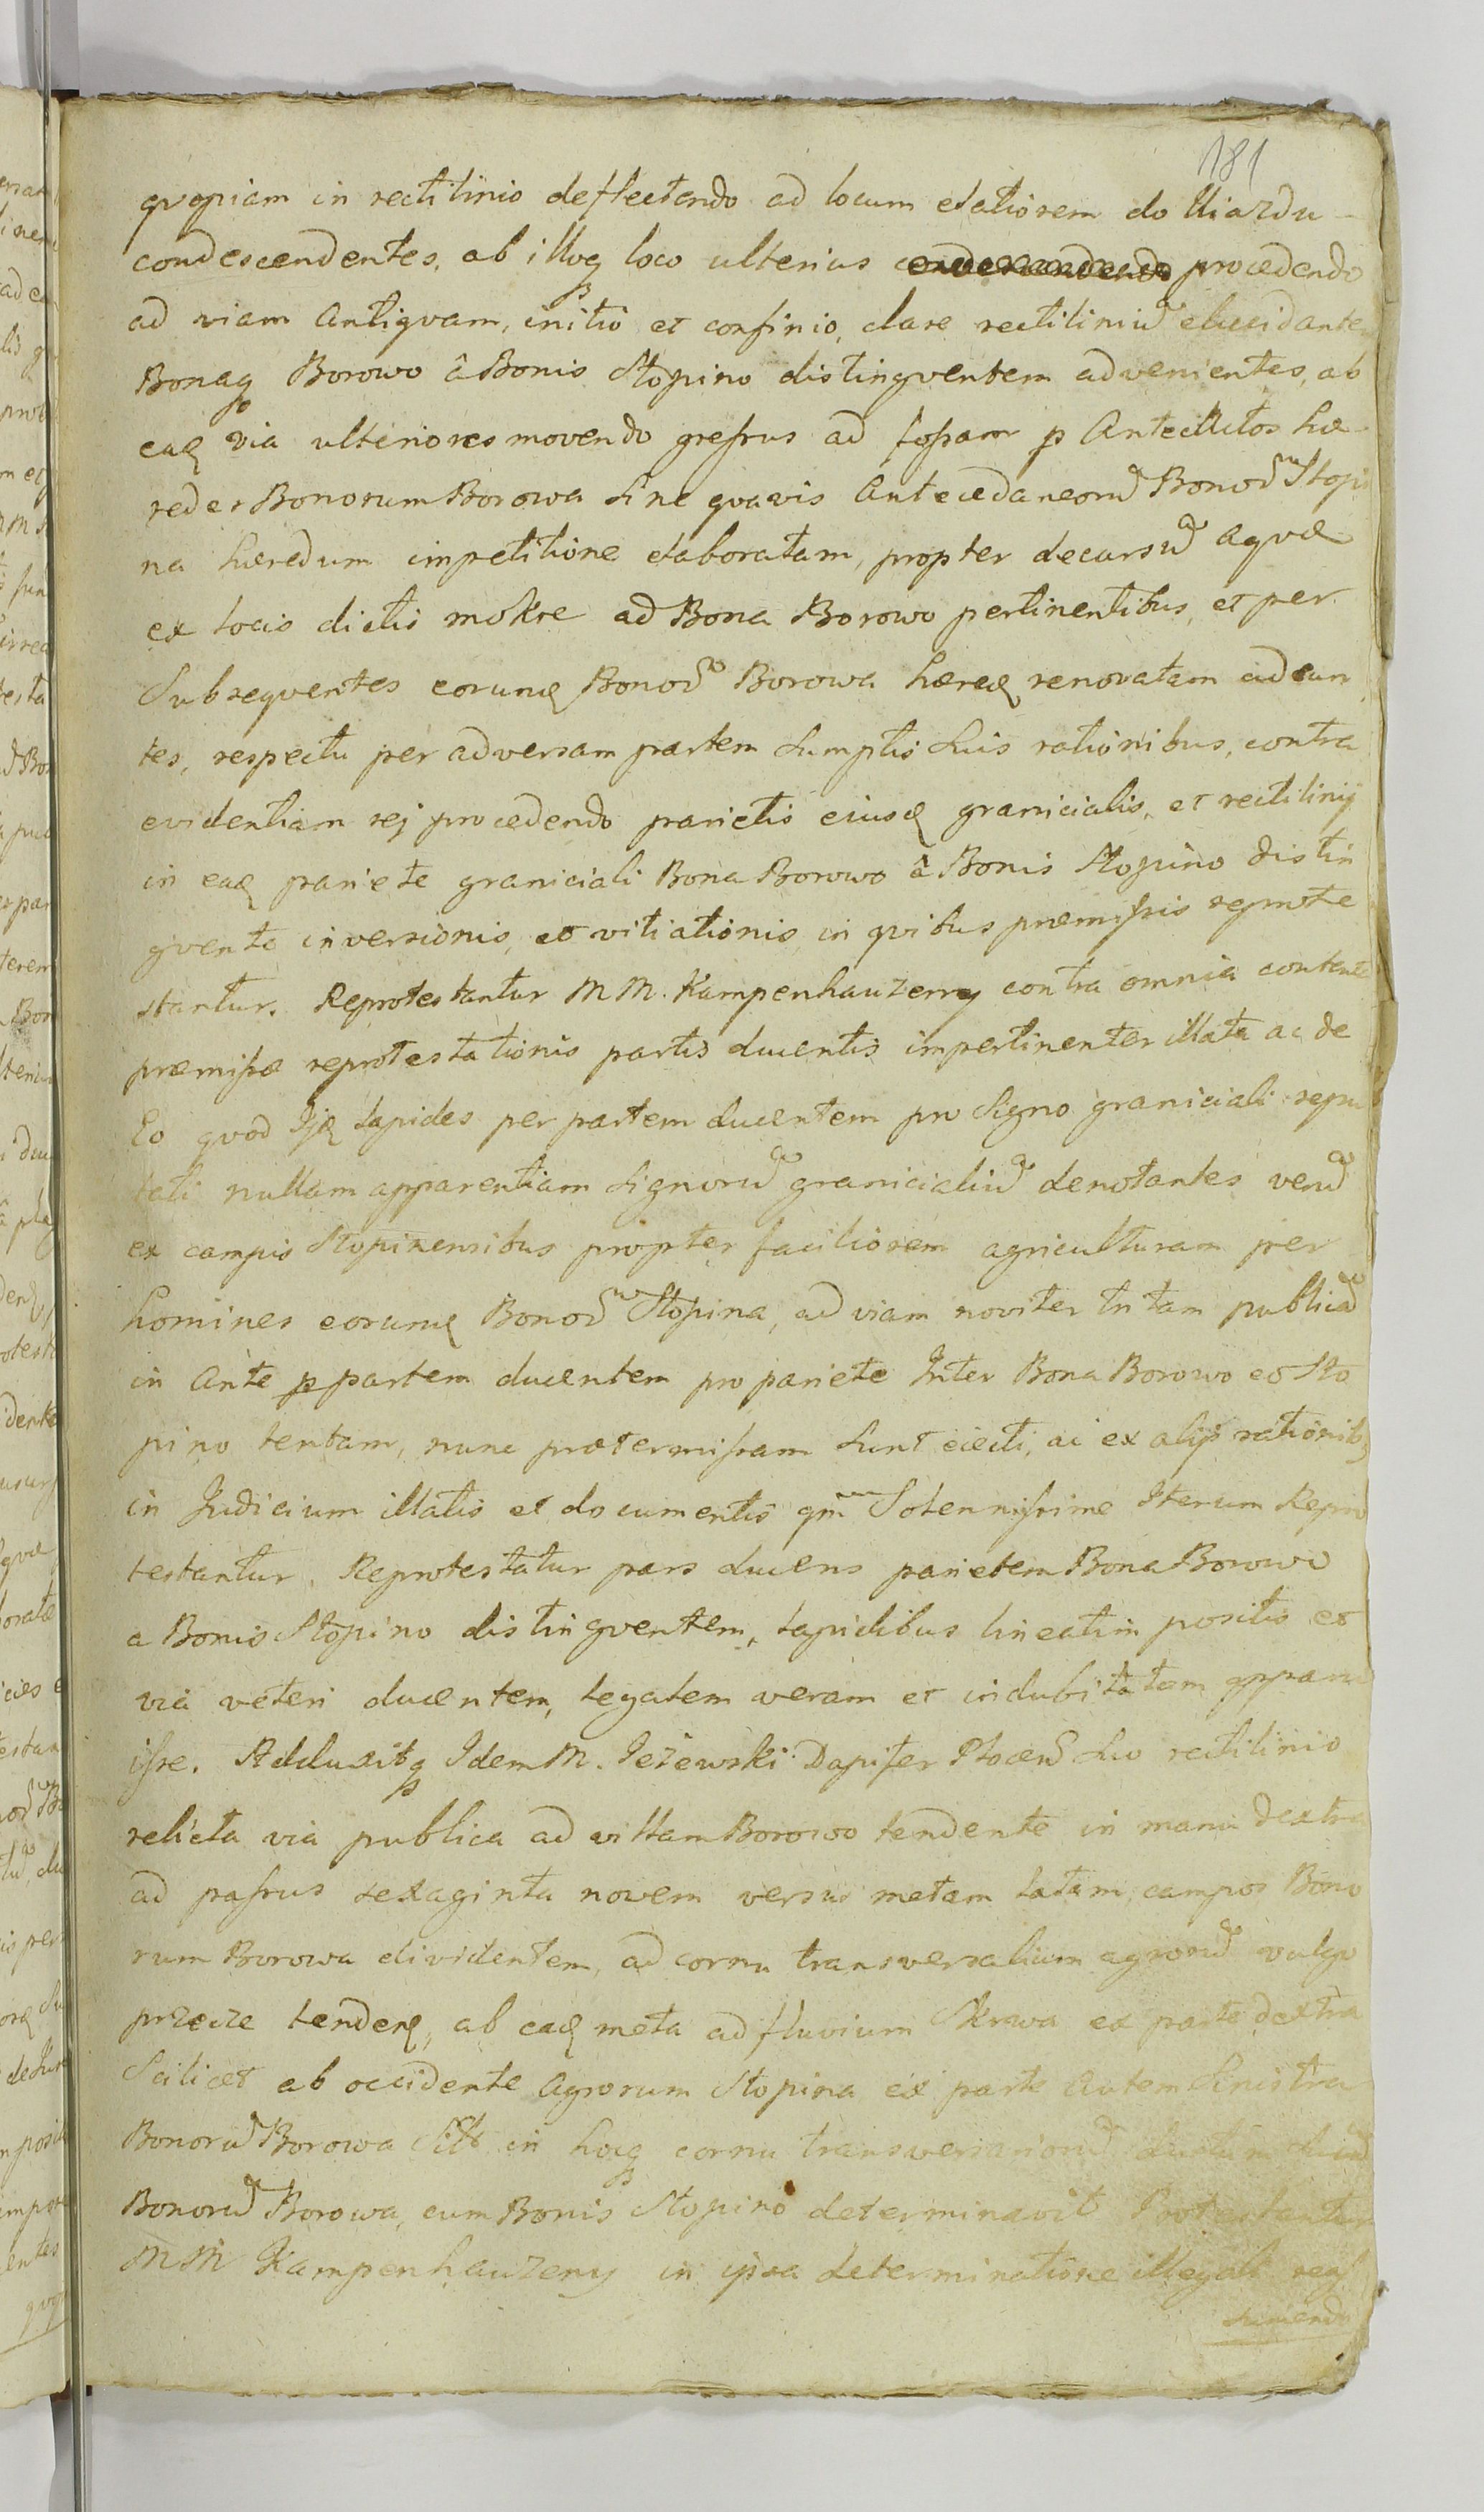 181
qvopiam in rectilinio deflectendo ad locum elatiorem do Uiazdu
condescendentes, ab illoq loco ulterius procedendo
ad viam Antiqvam, initio et confinio, clare rectiliniu elucidante
Bonaq Borowo â Bonis Stopino distingventem advenientes, ab
eaq via ulteriores movendo gressus ad fossam p Antecillutos hæ
redes Bonorum Borowa Sine qvavis Antecedaneoru Bonor Stopi
na hæredum impetitione elaboratam, propter decursu aqvæ
ex locis dictis mokre ad Bona Borowo pertinentibus, et per
Subseqventes eorunq Bonor Borowa hæreq renovatam adeun
tes, respectu per adversam partem Sumptis Suis rationibus, contra
evidentiam rej procedendo parietis eiusq granicialis, et rectilinij
in eaq pariete graniciali Bona Borowo â Bonis Stopino distin
gvente inversionis, et vitiationis, in qvibus præmissis reprote
stantur. Reprotestantur MM. Kampenhauzeny contra omnia contente
præmissæ reprotestationis partis ducentis impertinenter illata ac de
Eo qvod Ijq lapides per partem ducentem pro Signo graniciali repu
tati nullam apparentiam Signoru granicialiu denotantes veru
ex campis Stopinensibus propter faciliorem agriculturam per
homines eorunq Bonor Stopina, ad viam noviter tritam publica
in Ante p partem ducentem pro pariete Inter Bona Borowo et Sto
pino tentam, nunc prætermissam Sunt eiecti, ac ex alijs rationib9
in Judicium illatis et documentis qm Solennissime Iterum Repro
testantur. Reprotestatur pars ducens parietem Bona Borowo
a Bonis Stopino distingventem, lapidibus lineatim positis et
via veteri ducentem, legalem veram et indubitatam apparu
isse. Adduxitq Idem M. Jeżewski Dapifer Plocen Suo rectilinio
relicta via publica ad villam Borowo tendente in manu dextra
ad passus sexaginta novem versus metam latam, campos Bono
rum Borowa dividentem, ad cornu transversalium agroru vulgo
przecze tendenq, ab eaq meta ad fluvium Skrwa ex parte dextra
Scilicet ab occidente Agrorum Stopina ex parte Autem Sinistra
Bonoru Borowa Sit in hocq cornu transversarioru ductum Suu
Bonoru Borowa, cum Bonis Stopino determinavit Protestantur
MM Kampenhauzeny in ipsa determinatione illegali reas
sumendo